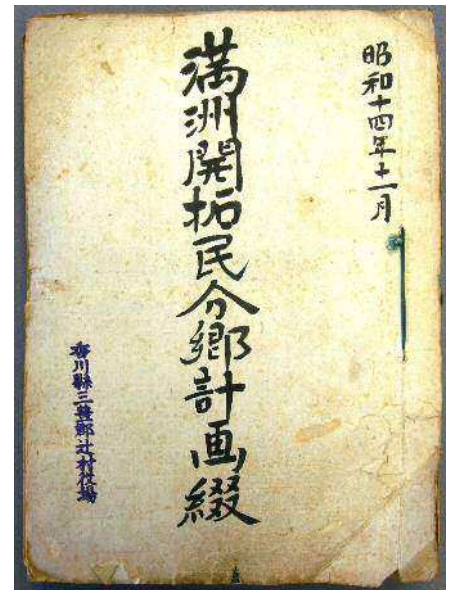 昭和十四年十一月
満洲開拓民分郷計画綴
香川縣三豊郡辻村役場